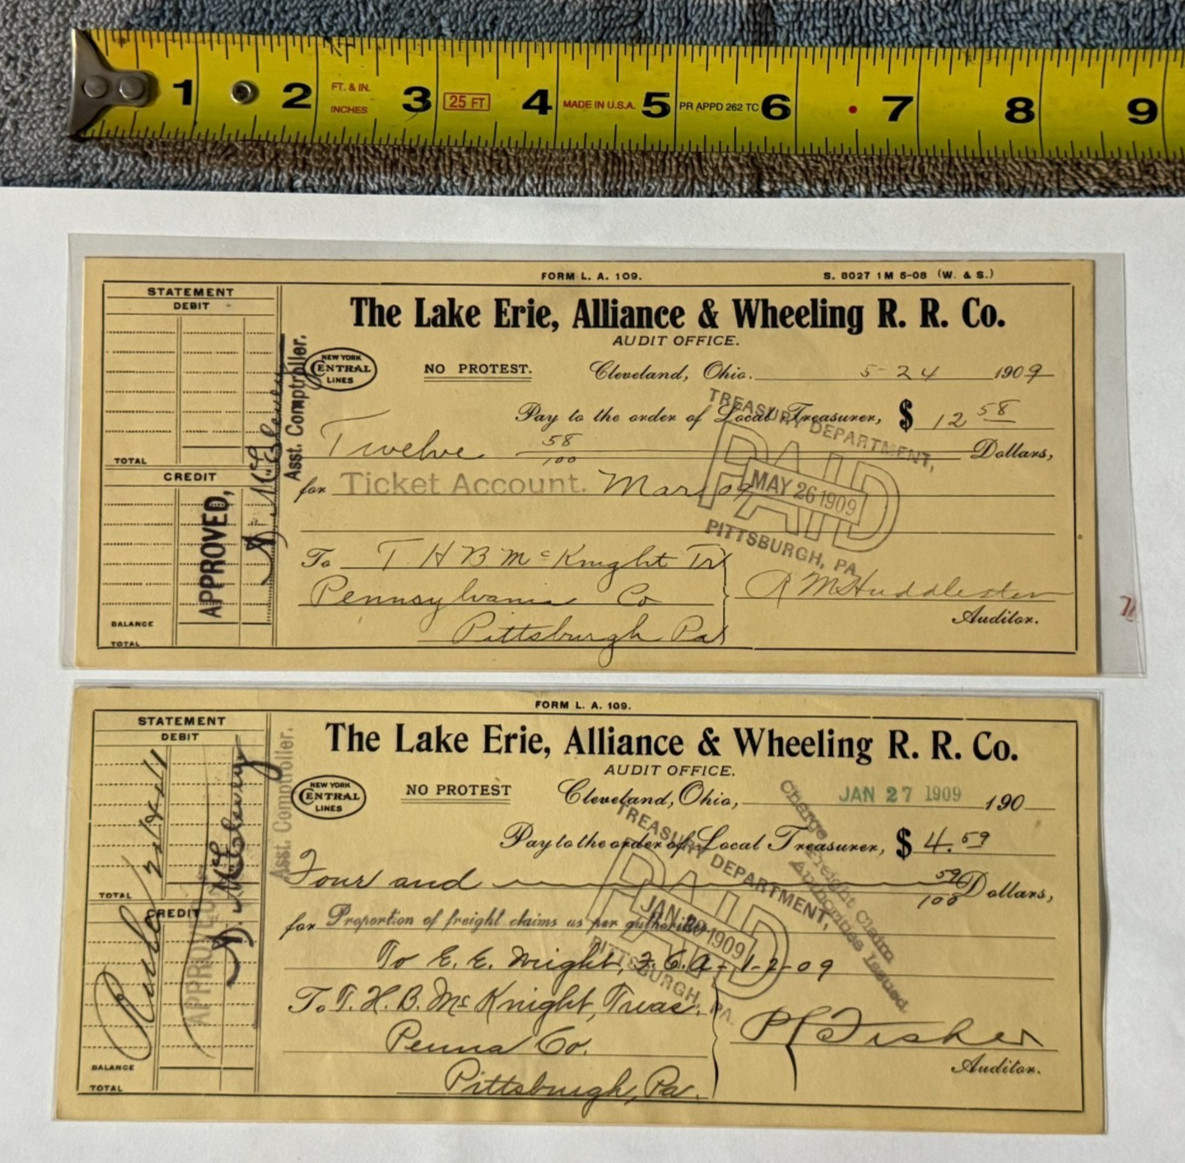 1 2 FT. & IN. INCHES 3 25 FT 4 MADE IN U.S.A. 5 PR APPD 262 TC 6 7 8 9
FORM L. A. 109. S. 8027 1M 5-08 (W. & S.)
STATEMENT
DEBIT
TOTAL
CREDIT
BALANCE
TOTAL
APPROVED,
Asst. Comptroller.
The Lake Erie, Alliance & Wheeling R. R. Co.
AUDIT OFFICE.
NEW YORK
CENTRAL
LINES
NO PROTEST.
Cleveland, Ohio. 5-24 1909
Pay to the order of Local Treasurer, $ 12 58
Twelve 58/100 Dollars,
for Ticket Account. Mar 09
TREASURY DEPARTMENT,
PAID
MAY 26 1909
PITTSBURGH, PA.
To T H B McKnight Tr
Pennsylvania Co
Pittsburgh Pa
R M Huddleston
Auditor.
FORM L. A. 109.
STATEMENT
DEBIT
TOTAL
CREDIT
BALANCE
TOTAL
APPROVED
Asst. Comptroller.
The Lake Erie, Alliance & Wheeling R. R. Co.
AUDIT OFFICE.
NEW YORK
CENTRAL
LINES
NO PROTEST
Cleveland, Ohio, JAN 27 1909 190
Pay to the order of Local Treasurer, $ 4.59
Four and 59/100 Dollars,
for Proportion of freight claims as per authorities
To E. E. Wright, F.C.A. 1-2-09
Charge Freight Claim
Authorities Issued.
TREASURY DEPARTMENT,
PAID
JAN 29 1909
PITTSBURGH, PA.
To T. H. B. McKnight, Treas.
Penna Co.
Pittsburgh, Pa.
Fisher
Auditor.